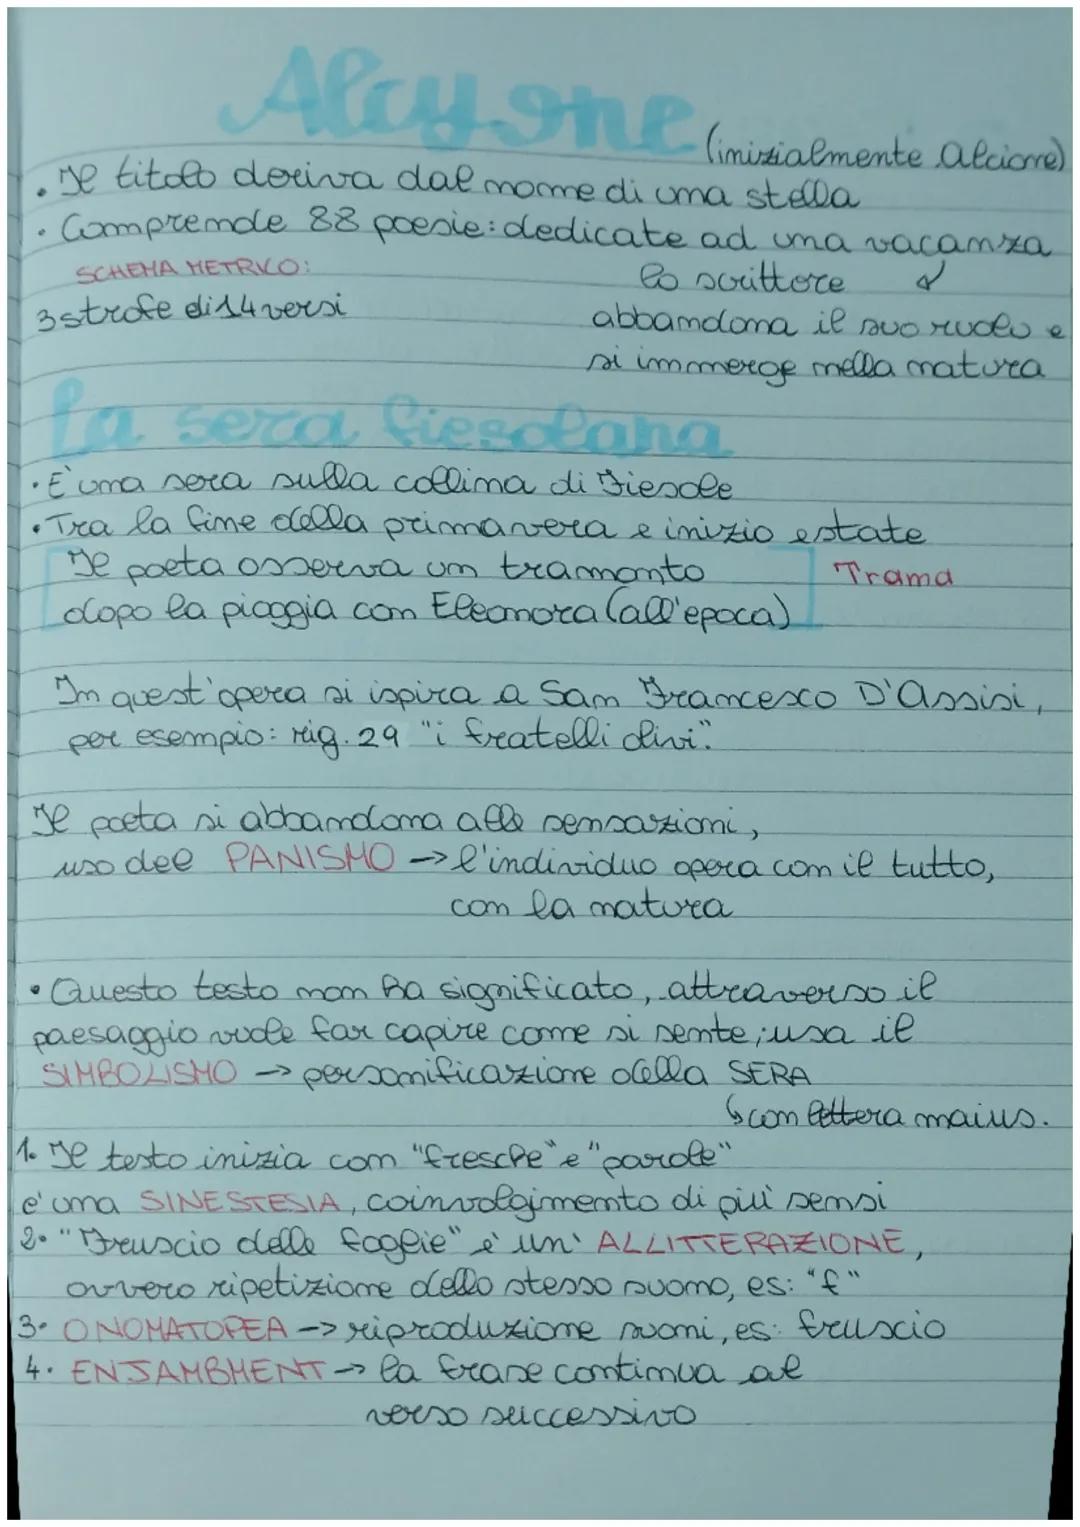 Alcyone
(inizialmente Alcione)
• Il titolo deriva dal nome di una stella
• Comprende 88 poesie: dedicate ad una vacanza
SCHEMA METRICO:
3 strofe di 14 versi
lo scrittore
abbandona il suo ruolo e
si immerge nella natura
La sera fiesolana
• E' una sera sulla collina di Fiesole
• Tra la fine della primavera e inizio estate
Il poeta osserva un tramonto
dopo la pioggia con Eleonora (all'epoca)
Trama
In quest'opera si ispira a San Francesco D'Assisi,
per esempio: rig. 29 "i fratelli olivi".
Il poeta si abbandona alle sensazioni,
uso del PANISMO → l'individuo opera con il tutto,
con la natura
• Questo testo non ha significato, attraverso il
paesaggio vuole far capire come si sente; usa il
SIMBOLISMO → personificazione della SERA
↳ con lettera maius.
1. Il testo inizia con "fresche" e "parole"
e' una SINESTESIA, coinvolgimento di più sensi
2. "Fruscio delle foglie" è un' ALLITTERAZIONE,
ovvero ripetizione dello stesso suono, es: "f"
3. ONOMATOPEA → riproduzione suoni, es: fruscio
4. ENJAMBMENT → la frase continua al
verso successivo